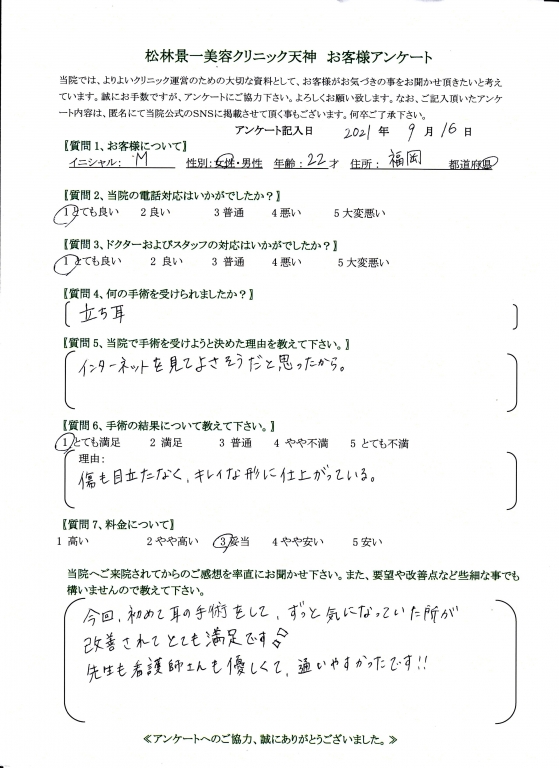 松林景一美容クリニック天神　お客様アンケート
当院では、よりよいクリニック運営のための大切な資料として、お客様がお気づきの事をお聞かせ頂きたいと考え
ています。誠にお手数ですが、アンケートにご協力下さい。よろしくお願い致します。なお、ご記入頂いたアンケ
ート内容は、匿名にて当院公式のSNSに掲載させて頂く事もございます。何卒ご了承下さい。
アンケート記入日　2021 年　9 月　16 日
【質問 1、お客様について】
イニシャル：　M　性別：女性・男性　年齢：22才　住所：　福岡　都道府県
【質問 2、当院の電話対応はいかがでしたか？】
1 とても良い　2 良い　3 普通　4 悪い　5 大変悪い
【質問 3、ドクターおよびスタッフの対応はいかがでしたか？】
1 とても良い　2 良い　3 普通　4 悪い　5 大変悪い
【質問 4、何の手術を受けられましたか？】
立ち耳
【質問 5、当院で手術を受けようと決めた理由を教えて下さい。】
インターネットを見てよさそうだと思ったから。
【質問 6、手術の結果について教えて下さい。】
1 とても満足　2 満足　3 普通　4 やや不満　5 とても不満
理由：
傷も目立たなく、キレイな形に仕上がっている。
【質問 7、料金について】
1 高い　2 やや高い　3 妥当　4 やや安い　5 安い
当院へご来院されてからのご感想を率直にお聞かせ下さい。また、要望や改善点など些細な事でも
構いませんので教えて下さい。
今回、初めて耳の手術をして、ずっと気になっていた所が
改善されてとても満足です♪
先生も看護師さんも優しくて、通いやすかったです!!
≪アンケートへのご協力、誠にありがとうございました。≫